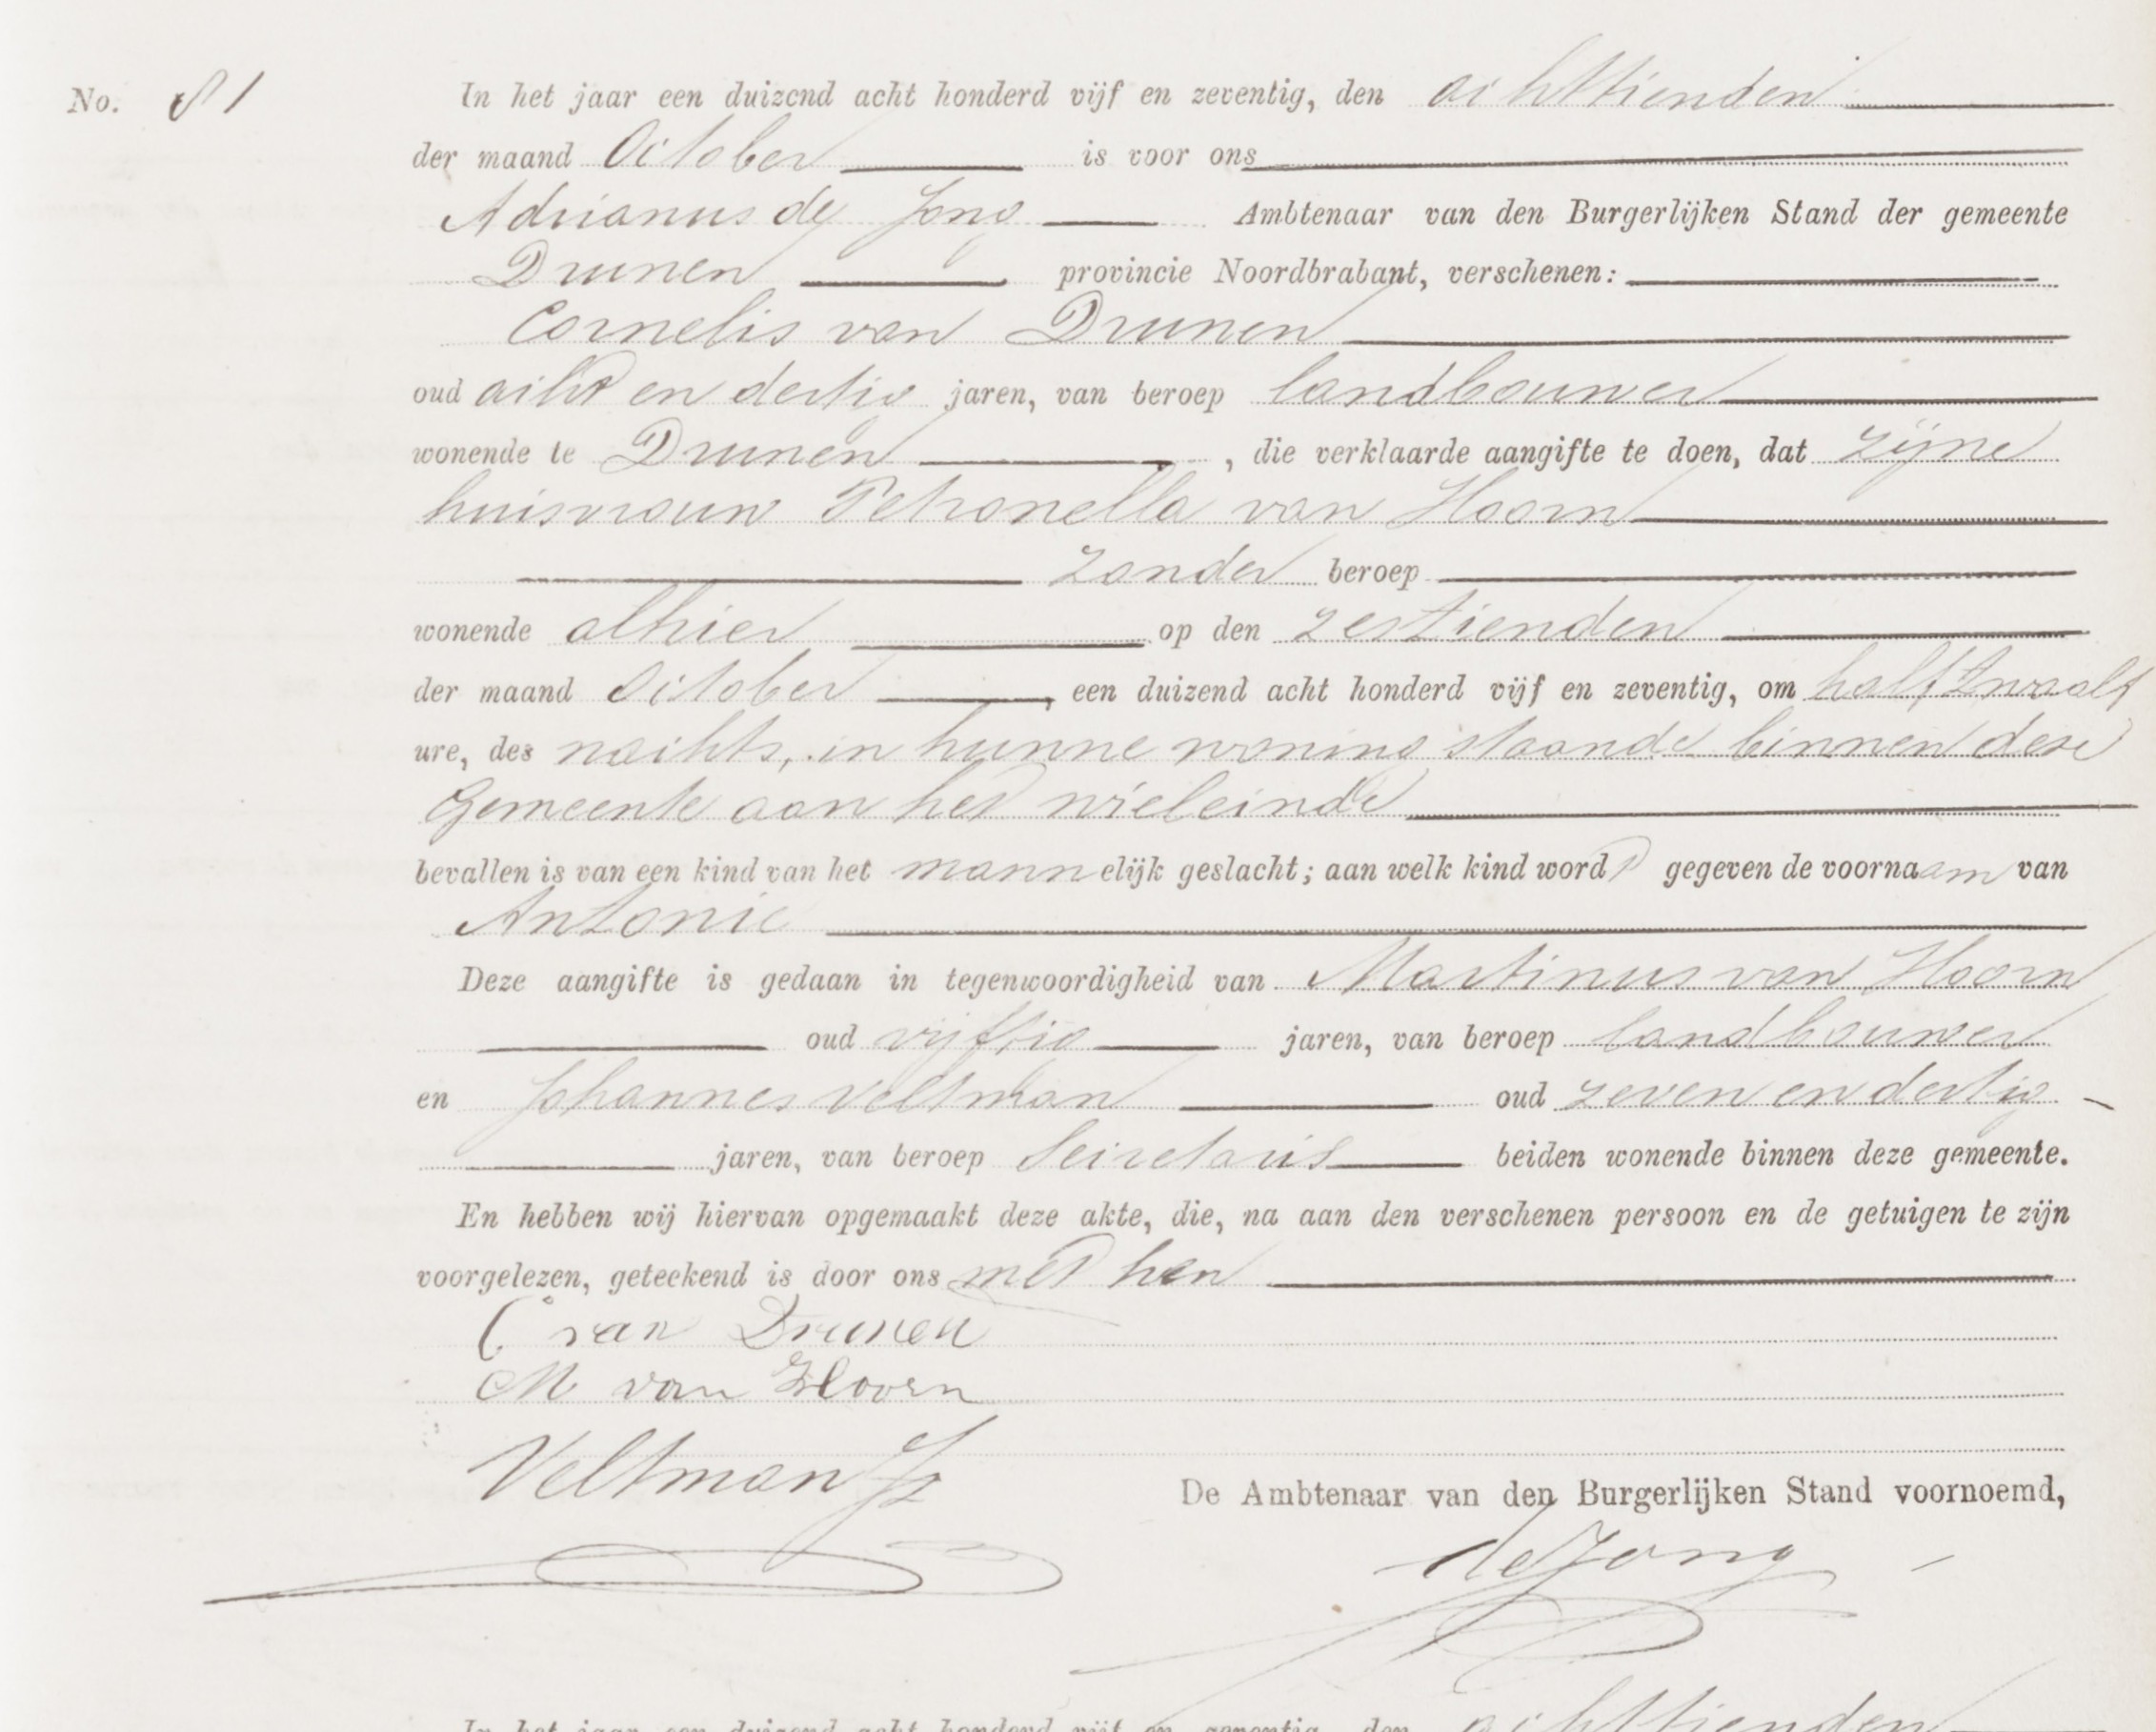 No. 81
In het jaar een duizend acht honderd vijf en zeventig, den achttienden
der maand October is voor ons
Adrianus de Jong Ambtenaar van den Burgerlijken Stand der gemeente
Drunen provincie Noordbrabant, verschenen:
Cornelis van Drunen
oud acht en dertig jaren, van beroep landbouwer
wonende te Drunen, die verklaarde aangifte te doen, dat zijne
huisvrouw Petronella van Hoorn
zonder beroep
wonende alhier op den zestienden
der maand October, een duizend acht honderd vijf en zeventig, om half twaalf
ure, des nachts, in hunne woning staande binnen deze
Gemeente aan het wieleinde
bevallen is van een kind van het mannelijk geslacht; aan welk kind wordt gegeven de voornaam van
Antonie
Deze aangifte is gedaan in tegenwoordigheid van Martinus van Hoorn
oud vijftig jaren, van beroep landbouwer
en Johannes Veltman oud zeven en dertig
jaren, van beroep Secretaris beiden wonende binnen deze gemeente.
En hebben wij hiervan opgemaakt deze akte, die, na aan den verschenen persoon en de getuigen te zijn
voorgelezen, geteekend is door ons met hen
C van Drunen
M van Hoorn
Veltman Jz
De Ambtenaar van den Burgerlijken Stand voornoemd,
de Jong
In het jaar een duizend acht honderd vijf en zeventig, den achttienden